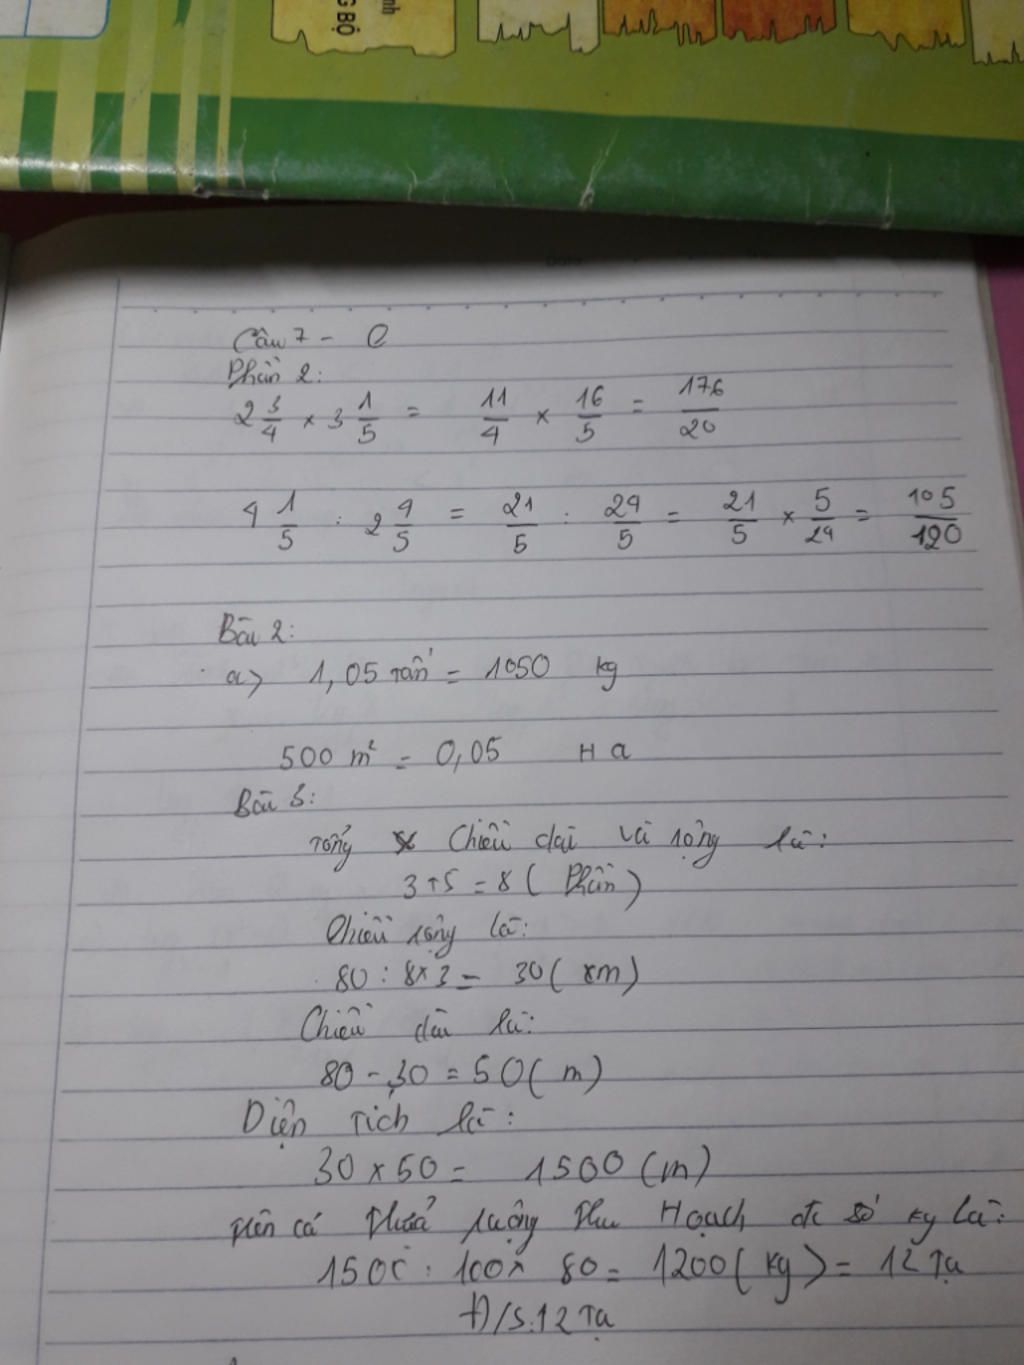 G BỘ
nh
Câu 7 - C
Phần 2:
2 3/4 × 3 1/5 = 11/4 × 16/5 = 176/20
4 1/5 : 2 4/5 = 21/5 : 24/5 = 21/5 × 5/24 = 105/120
Bài 2:
a> 1,05 Tấn = 1050 kg
500 m² = 0,05 Ha
Bài 3:
Tổng chiều dài và rộng là:
3+5 = 8 ( Phần )
Chiều rộng là:
80 : 8×3 = 30 ( m)
Chiều dài là:
80 - 30 = 50 ( m)
Diện Tích là:
30 × 50 = 1500 (m)
Trên cả thửa ruộng thu Hoạch đc số kg là:
1500 : 100 × 80 = 1200 ( kg ) = 12 Tạ
Đ/S: 12 Tạ